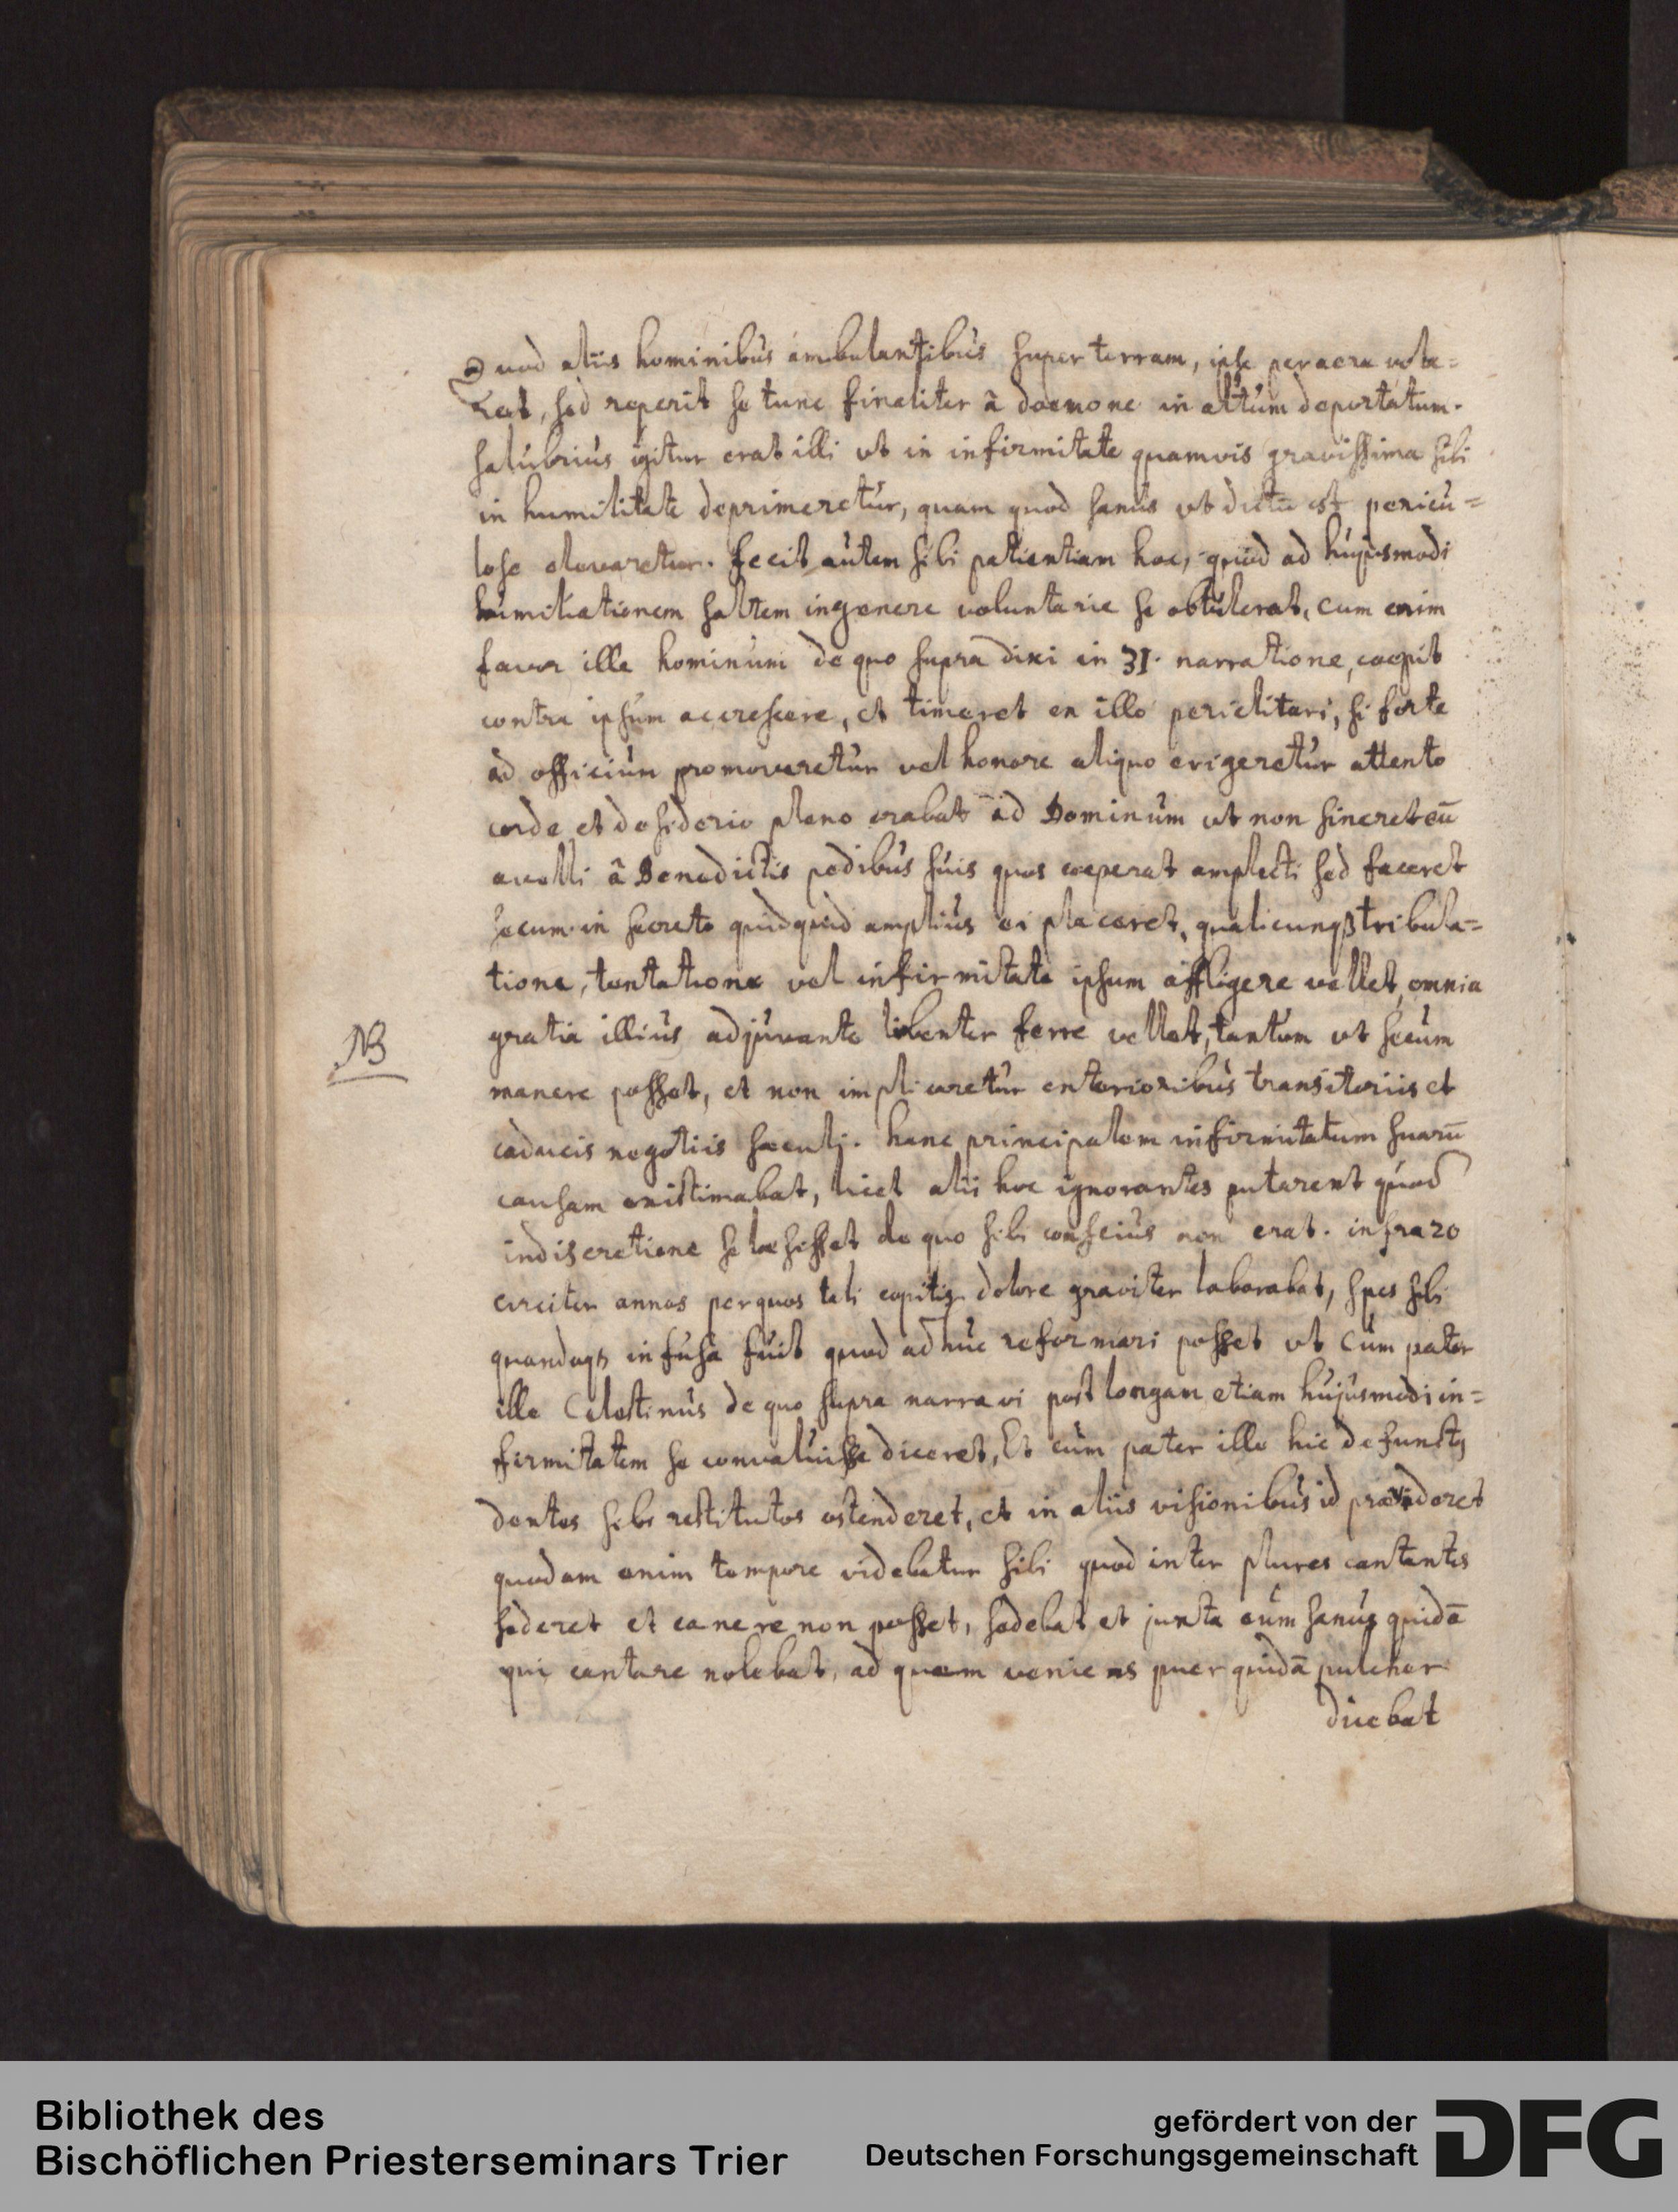 Quod aliis hominibus ambulantibus super terram, ipse per aera vola=
ret, sed reperit se tunc finaliter â daemone in altum deportatum.
salubrius igitur erat illi ut in infirmitate quamvis gravissima sibi
in humilitate deprimeretur, quam quod sanus ut dictū est pericu=
lose elevaretur. fecit autem sibi patientiam hoc, quod ad hujusmodi
humiliationem saltem in genere voluntarie se obtulerat, cum enim
favor ille hominum de quo supra dixi in 31. narratione, coepit
contra ipsum accrescere, et timeret ex illo periclitari, si forte
ad officium promoveretur vel honore aliquo erigeretur attento
corde et desiderio pleno orabat ad Dominum ut non sineret eū
avelli â Benedictis pedibus suis quos coeperat amplecti sed faceret
secum in secreto quidquid amplius ei placeret, qualicunqꝫ tribula=
tione, tentatione vel infirmitate ipsum affligere vellet, omnia
gratia illius adjuvante libenter ferre vellet, tantum ut secum
NB
manere posset, et non implicaretur exterioribus transitoriis et
caducis negotiis saeculi. hanc principalem infirmitatum suarū
causam existimabat, licet alii hoc ignorantes putarent quod
indiscretione se laesisset de quo sibi conscius non erat. infra 20
circiter annos per quos tali capitis dolore graviter laborabat, spes sibi
quandoqꝫ infusa fuit quod adhuc reformari posset ut cum pater
ille Celestinus de quo supra narravi post longam etiam hujusmodi in=
firmitatem se convaluisse diceret, Et cum pater ille hic defunctꝯ
dentes sibi restitutos ostenderet, et in aliis visionibus id praevideret
quodam enim tempore videbatur sibi quod inter plures cantantes
sederet et canere non posset, sedebat et juxta eum sanus quidā
qui cantare nolebat, ad quem veniens puer quidā pulcher
dicebat
Bibliothek des
Bischöflichen Priesterseminars Trier
gefördert von der
Deutschen Forschungsgemeinschaft
DFG